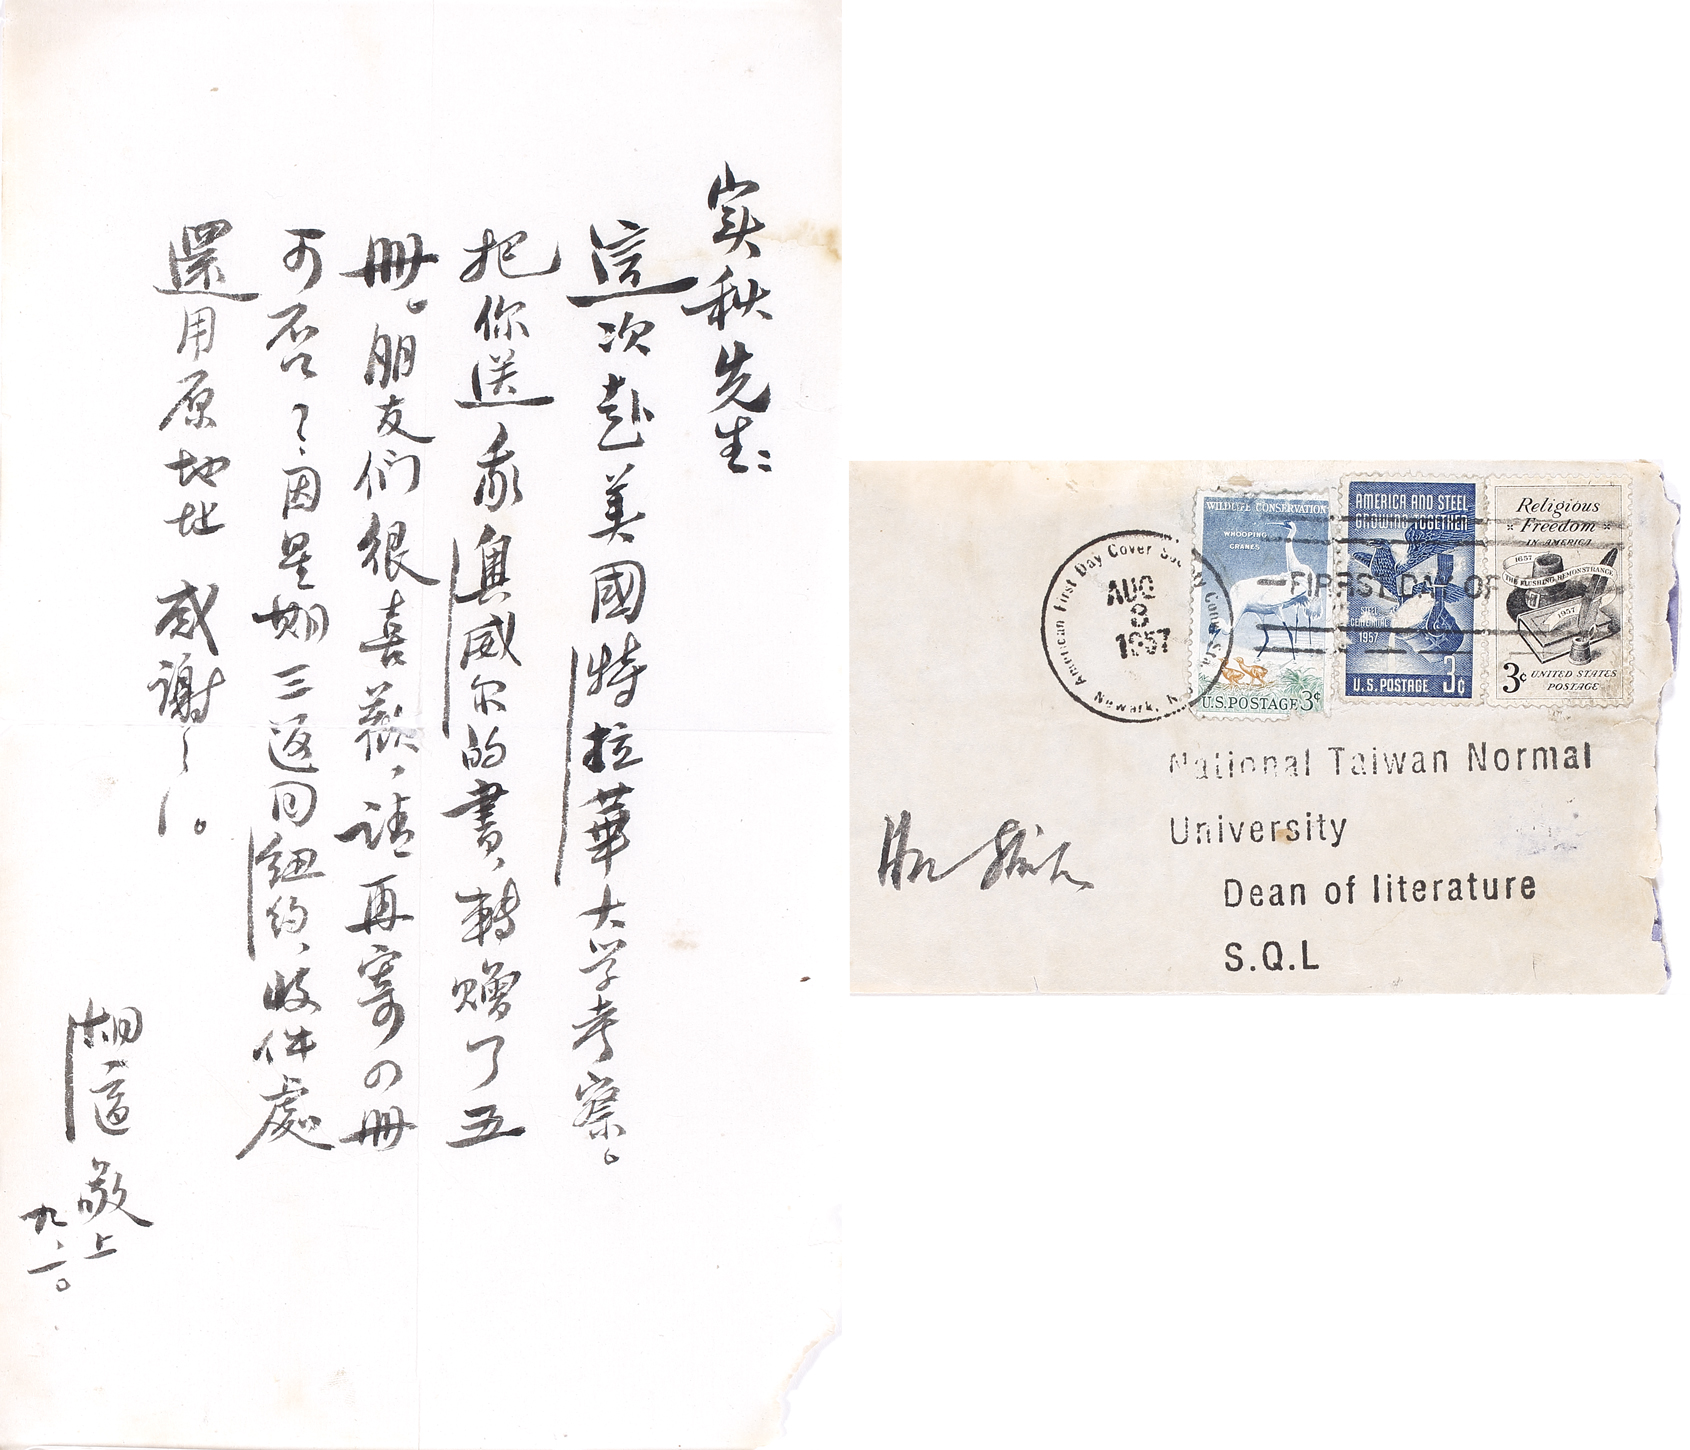 实秋先生:
這次赴美國特拉華大学考察。
把你送我奧威尔的書,轉贈了五
册。朋友们很喜歡,请再寄の册
可否?
因是期三返回纽约,收件處
還用原地址 感谢!。
胡适敬上
九.二〇
WILDLIFE CONSERVATION
WHOOPING
CRANES
U.S.POSTAGE 3¢
AMERICA AND STEEL
GROWING TOGETHER
STEEL
CENTENNIAL
1957
U.S. POSTAGE 3¢
Religious
Freedom
IN AMERICA
1657
THE FLUSHING REMONSTRANCE
1957
3¢ UNITED STATES
POSTAGE
American First Day Cover Society
AUG
3
1957
Newark, N.
FIRST DAY OF
National Taiwan Normal
University
Dean of literature
S.Q.L
Hu Shih